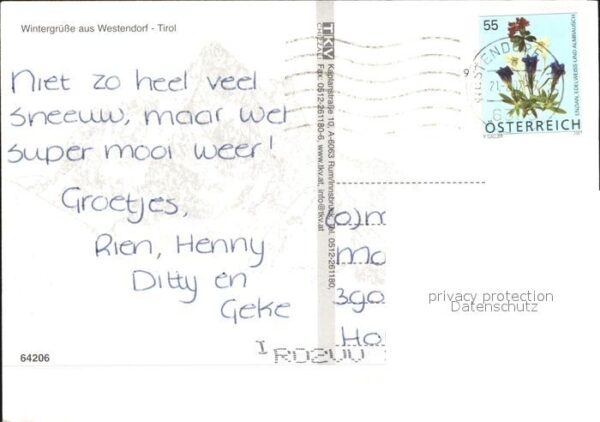 Wintergrüße aus Westendorf - Tirol
Niet zo heel veel
sneeuw, maar wel
super mooi weer!
Groetjes,
Rien, Henny
Ditty en
Geke
64206
TKV
Kaplanstraße 10, A-6063 Rum/Innsbruck, Tel. 0512-261180,
Fax 0512-261180-6, www.tkv.at, info@tkv.at
55
ENZIAN, EDELWEISS UND ALMRAUSCH
ÖSTERREICH
WESTENDORF
(o)m
Mo
3go
Ho
privacy protection
Datenschutz